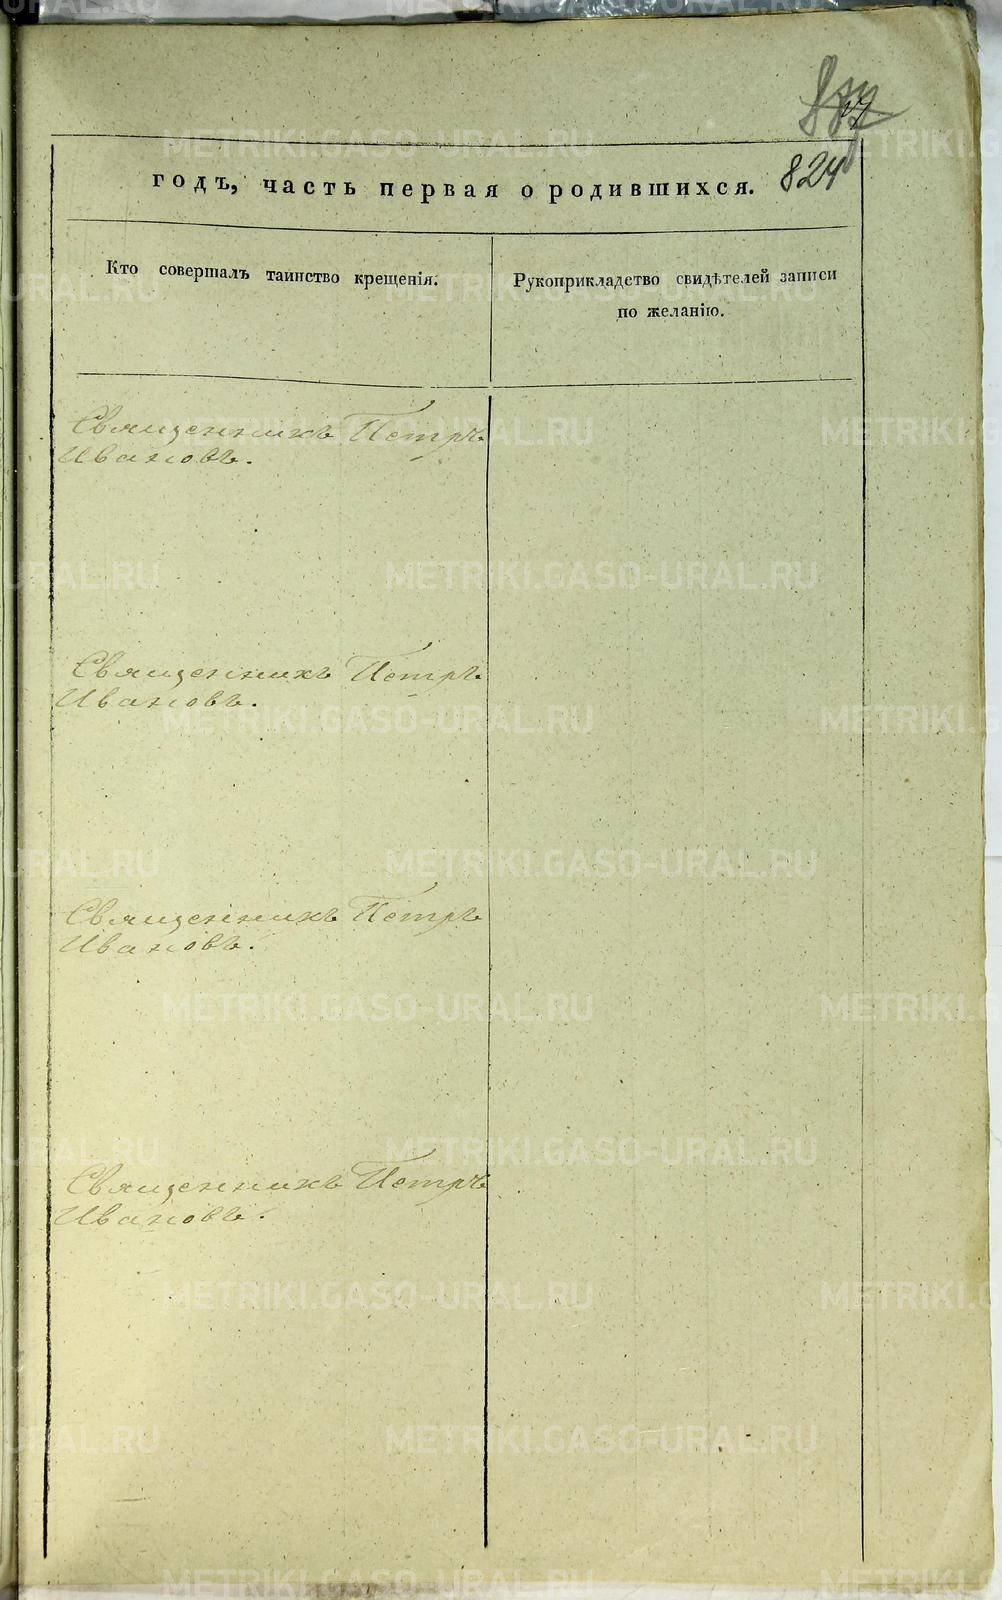 824
годъ, часть первая о родившихся.
Кто совершалъ таинство крещенія.
Рукоприкладство свидѣтелей записи
по желанію.
Священникъ Петръ
Ивановъ.
Священникъ Петръ
Ивановъ.
Священникъ Петръ
Ивановъ.
Священникъ Петръ
Ивановъ.
METRIKI.GASO-URAL.RU